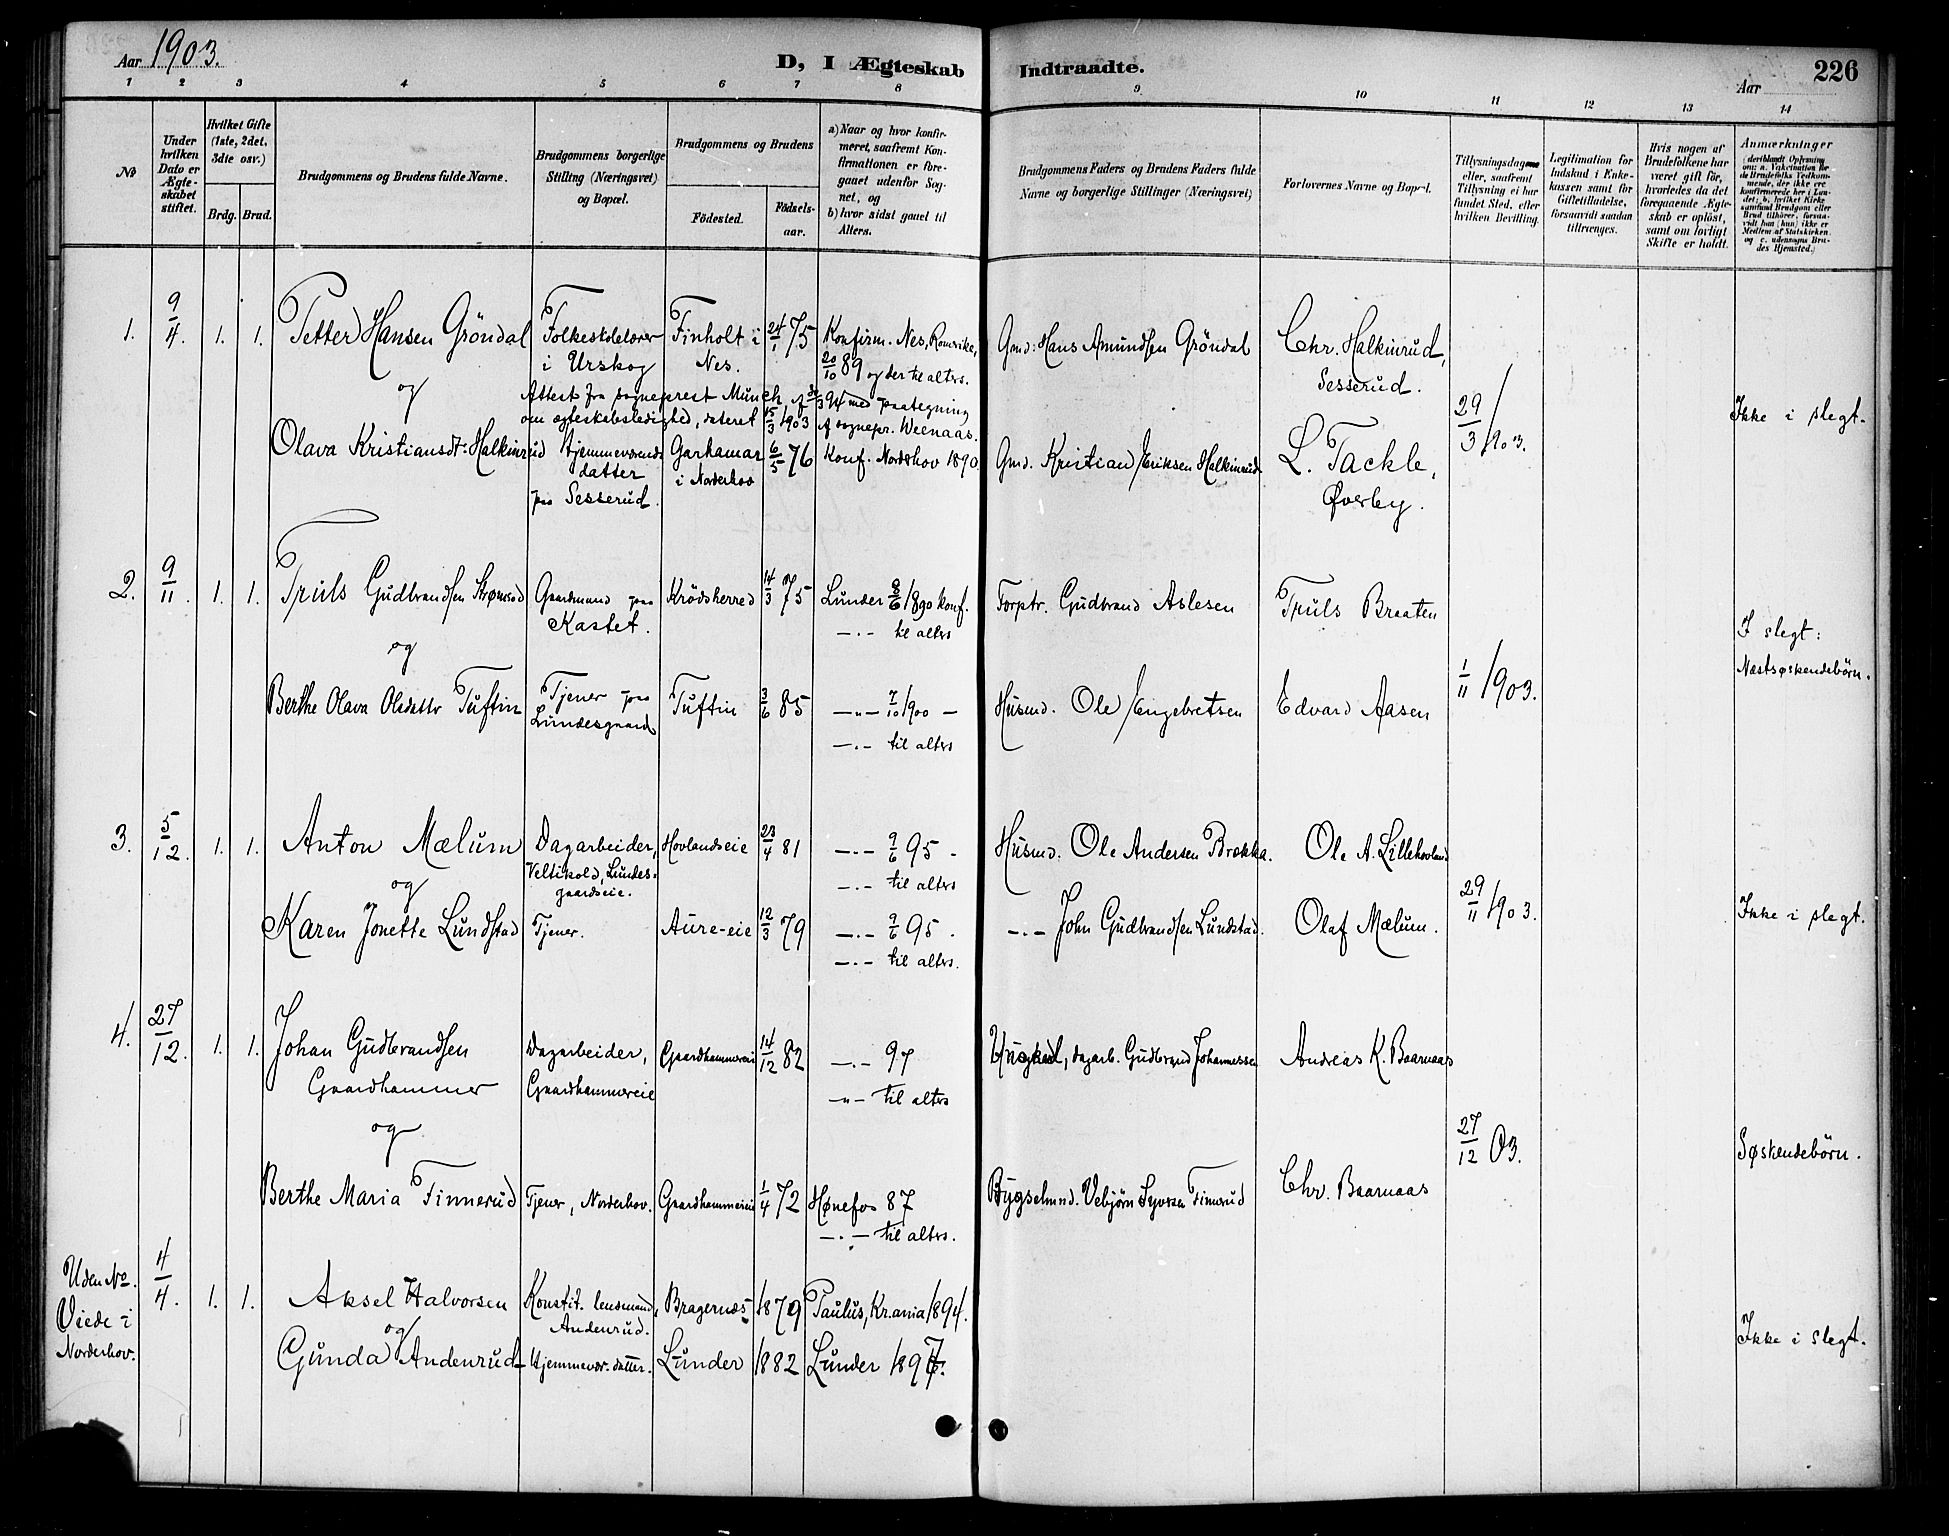 Aar 1903.
D, I Ægteskab Indtraadte.
Aar
226
1 2 3 4 5 6 7 8 9 10 11 12 13 14
No
Under hvilken Dato er Ægteskabet stiftet.
Hvilket Gifte (1ste, 2det, 3die osv.)
Brdg. Brud.
Brudgommens og Brudens fulde Navne.
Brudgommens borgerlige Stilling (Næringsvei) og Bopæl.
Brudgommens og Brudens
Fødested.
Fødselsaar.
a) Naar og hvor konfirmeret, saafremt Konfirmationen er foregaaet udenfor Sognet, og
b) hvor sidst gaaet til Alters.
Brudgommens Faders og Brudens Faders fulde Navne og borgerlige Stillinger (Næringsvei)
Forlovernes Navne og Bopæl.
Tillysningsdagene eller, saafremt Tillysning ei har fundet Sted, efter hvilken Bevilling.
Legitimation for Indskud i Enkekassen samt for Giftetilladelse, forsaavidt saadan tiltrænges.
Hvis nogen af Brudefolkene har været gift før, hvorledes da det foregaaende Ægteskab er opløst, samt om lovligt Skifte er holdt.
Anmærkninger
1. 9/4. 1. 1. Petter Hansen Gröndal
Folkeskolelærer i Urskog
Finholt i Nes.
24/1 75
Konfirm. Nes, Romerike, 20/10 89 og der til alters.
Gmd: Hans Amundsen Gröndal
Chr. Halkinrud, Sesserud.
og
Attest fra sogneprest Munch, af 30/3 94 med paategning
om ægteskabsledighed, dateret 15/3 1903 af sognepr. Weenaas.
29/3 1903.
Ikke i slegt.
Olava Kristiansdt. Halkinrud
Hjemmeværende datter paa Sesserud.
Garhamar i Norderhov
6/5 76
Konf. Norderhov 1890
Gmd. Kristian Eriksen Halkinrud
L. Tackle, Øverby.
2. 9/11. 1. 1. Truls Gudbrandsen Strømsod
Gaardmand paa Kastet.
Krödsherred
14/3 75
Lunder 8/6 1890 konf.
—.— til alters
Torptr. Gudbrand Aslesen
Truls Braaten
og
1/11 1903.
I slegt:
Næstsøskendebörn.
Berthe Olava Olsdatter Tuftin
Tjener paa Lundesgaard
Tuftin
3/6 85
—„— 7/10 1900 —
—.— til alters
Husmd. Ole Engebretsen
Edvard Aasen
3. 5/12. 1. 1. Anton Mælum
Dagarbeider, Veltikold, Lundesgaardseie.
Hovlandseie
23/4 81
—.— 9/6 95 -
—.— til alters
Husmd. Ole Andersen Brækka.
Ole A. Lillehovland
og
29/11 1903.
Ikke i slegt.
Karen Jonette Lundstad
Tjener.
Aure-eie
12/3 79
—.— 9/6 95.
—.— til alters.
—.— John Gudbrandsen Lundstad.
Olaf Mælum.
4. 27/12. 1. 1. Johan Gudbrandsen Gaardhammer
Dagarbeider, Gaardhammereie
Gaardhammereie
14/12 82
—.— 97
—„— til alters
dagarb. Gudbrand Johannessen
Andreas K. Baarnaas
og
27/12 03.
Søskendebörn.
Berthe Maria Finnerud
Tjener, Norderhov.
Gaardhammereie
1/4 72
Hønefos 87
—.— til alters.
Bygselmnd. Vebjörn Syversen Finnerud
Chr. Baarnaas
Uden No.
Viede i Norderhov.
4/4. 1. 1. Aksel Halvorsen
Konstit. lensmand, Andenrud.
Bragernæs
1879
Paulus, Kr.ania 1894.
og
Gunda Andenrud
Hjemmevær. datter.
Lunder
1882
Lunder 1897.
Ikke i slegt.